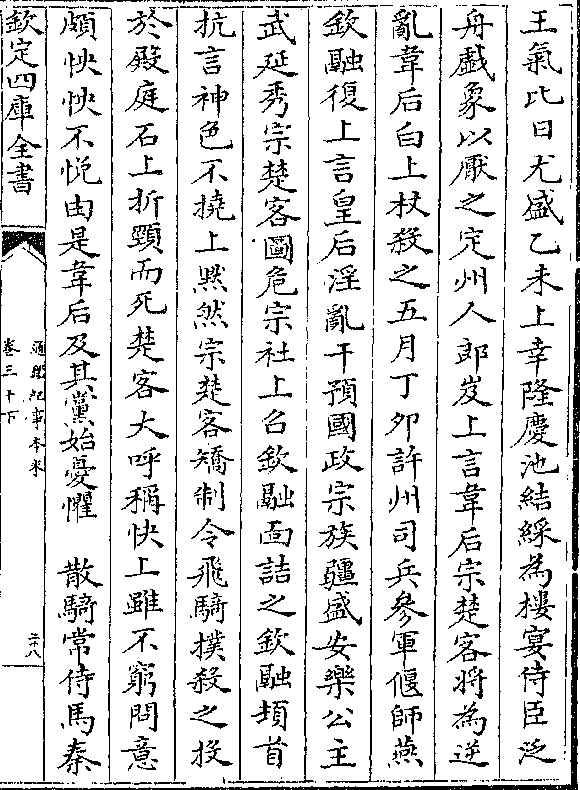 王氣比日尤盛乙未上幸隆慶池結綵為樓宴侍臣泛
舟戲象以厭之定州人郎岌上言韋后宗楚客將為逆
亂韋后白上杖殺之五月丁卯許州司兵參軍偃師燕
欽融復上言皇后淫亂干預國政宗族疆盛安樂公主
武延秀宗楚客圖危宗社上召欽融面詰之欽融頓首
抗言神色不撓上黙然宗楚客矯制令飛騎撲殺之投
於殿庭石上折頸而死楚客大呼稱快上雖不窮問意
頗怏怏不悅由是韋后及其黨始憂懼　散騎常侍馬秦
欽定四庫全書
通鑑紀事本末
卷三十下
二八